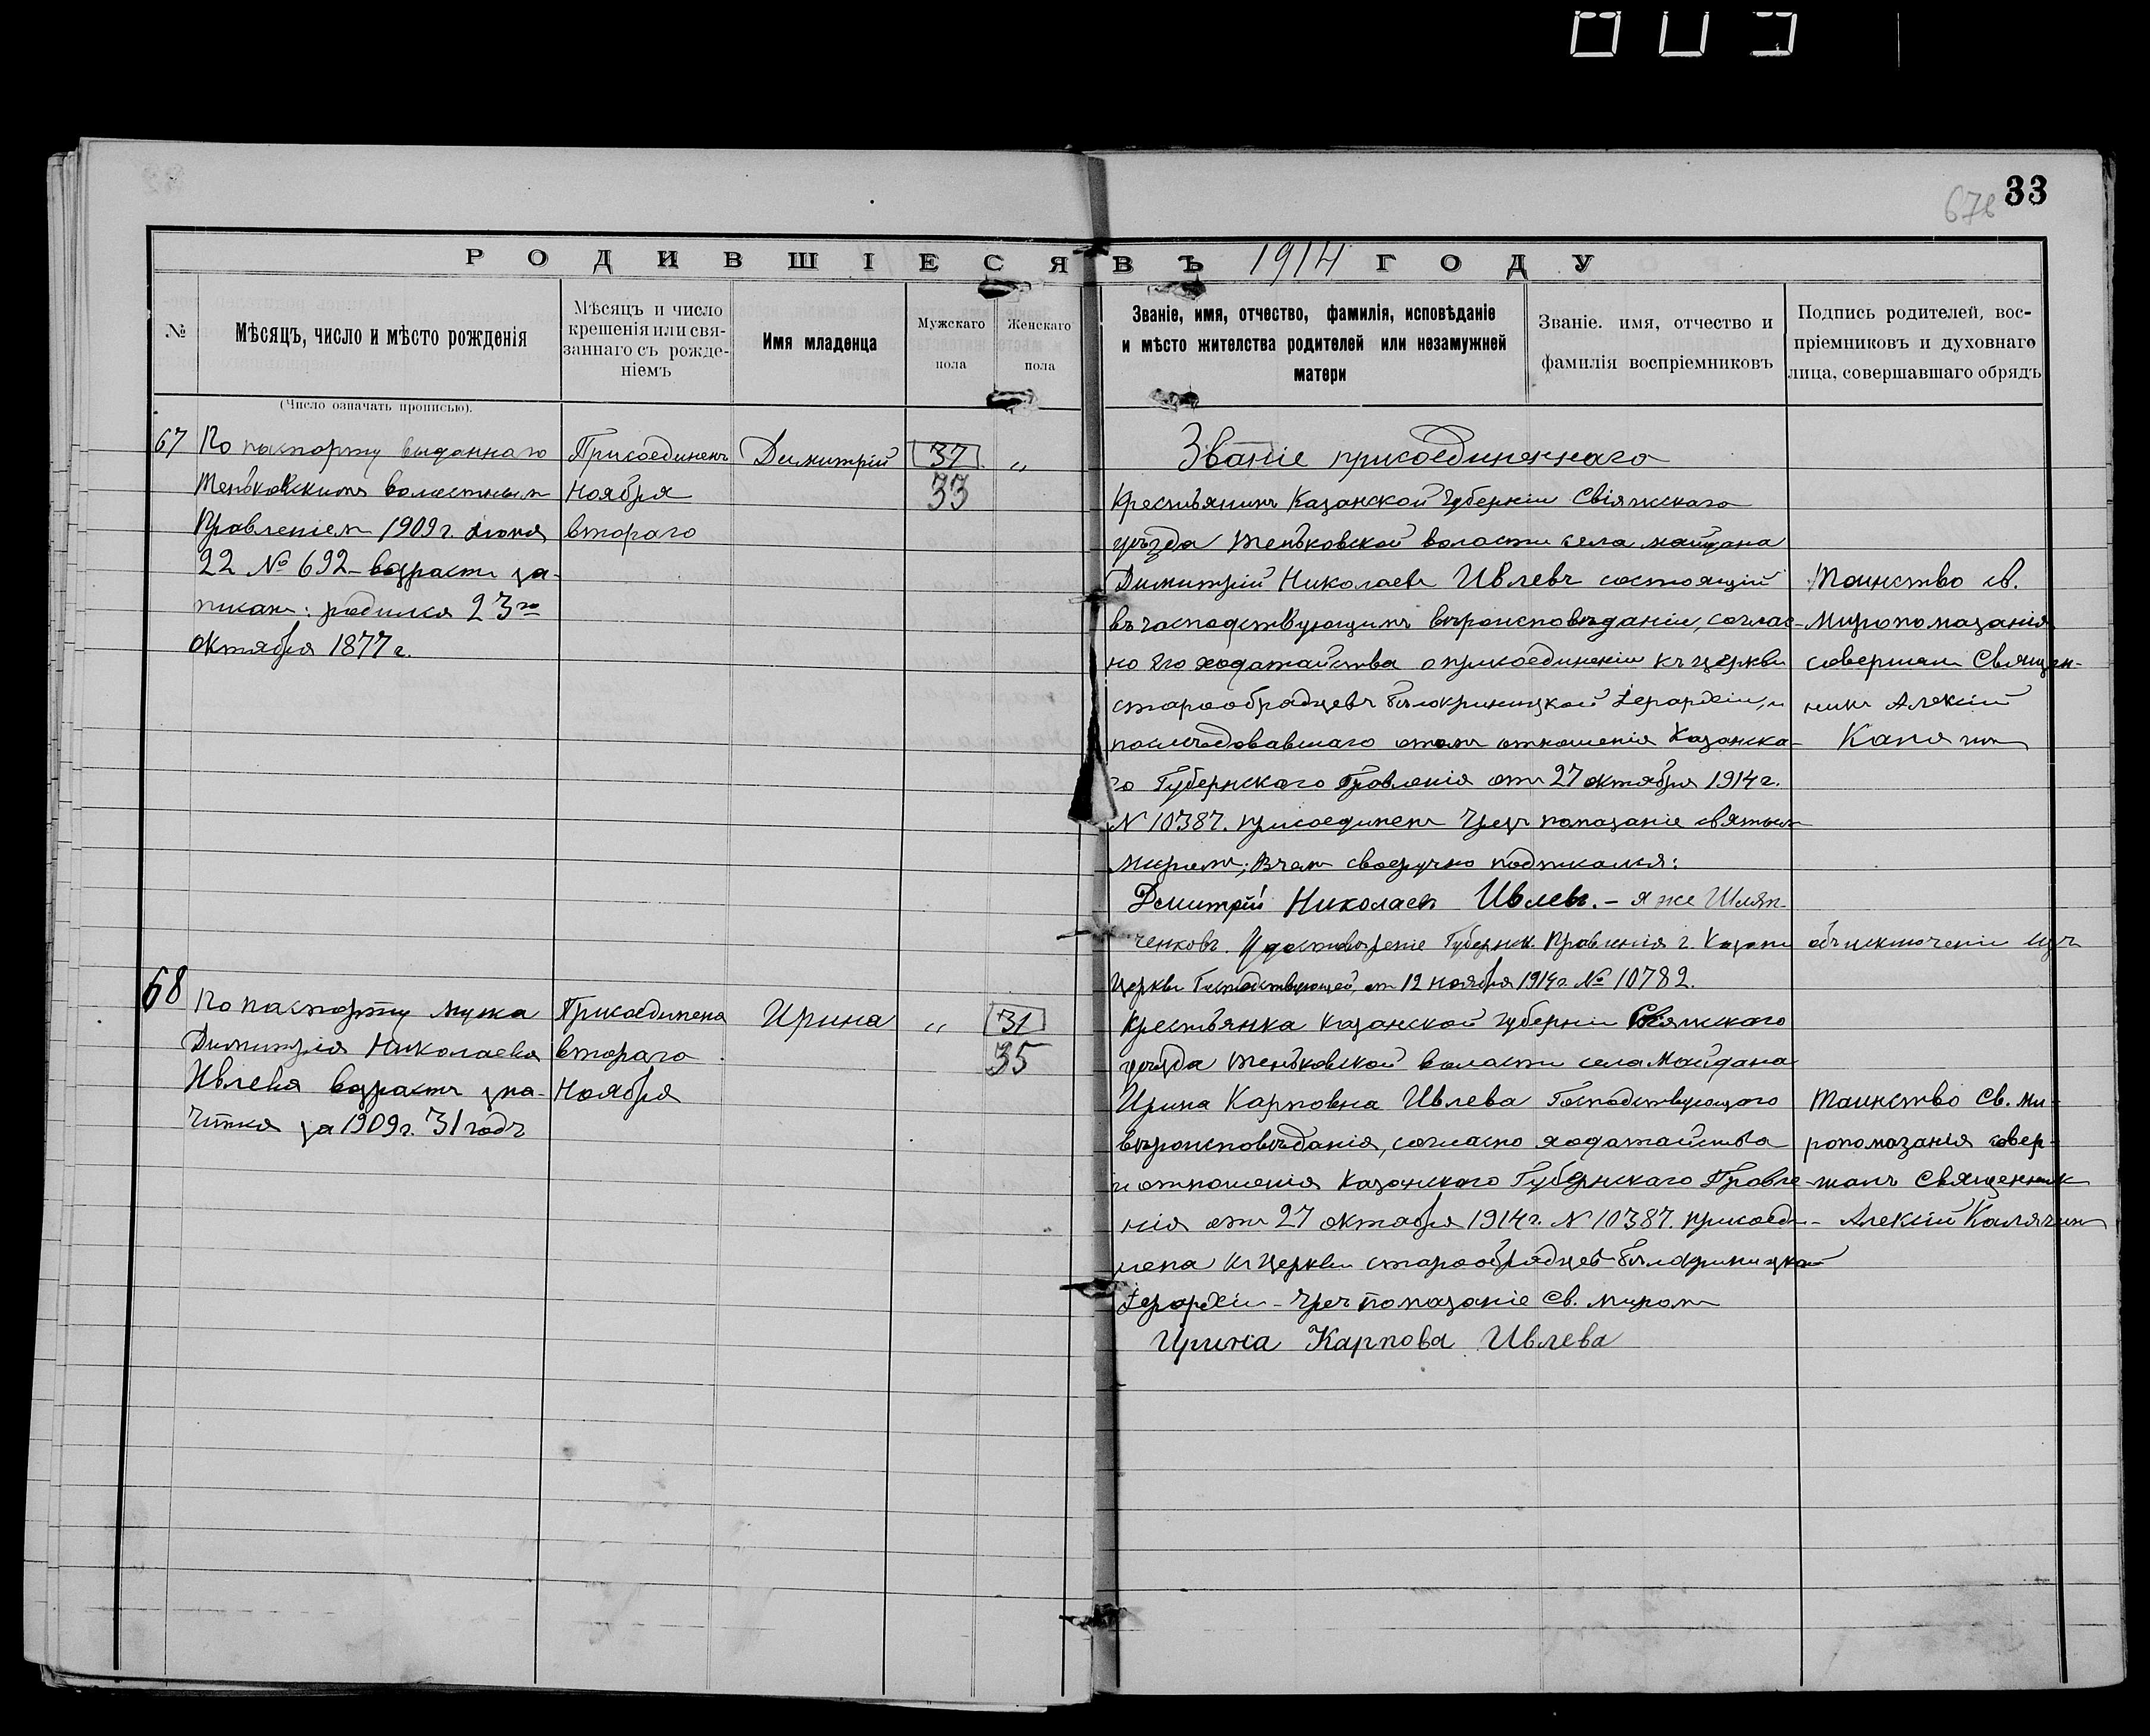 33
676
РОДИВШІЕСЯ ВЪ 1914 ГОДУ
№
Мѣсяцъ, число и мѣсто рожденія
(Число означать прописью).
Мѣсяцъ и число
крещенія или свя-
заннаго съ рожде-
ніемъ
Имя младенца
Мужскаго
пола
Женскаго
пола
Званіе, имя, отчество, фамилія, исповѣданіе
и мѣсто жителства родителей или незамужней
матери
Званіе. имя, отчество и
фамилія воспріемниковъ
Подпись родителей, вос-
пріемниковъ и духовнаго
лица, совершавшаго обрядъ
67
По паспорту выданнаго
Теньковскимъ волостным
Правленіем 1909 г. Июня
22 № 692 - возрасть за-
писан: родился 23го
Октября 1877 г.
Присоединенъ
Ноября
второго
Димитрій
37
33
"
Званіе присоединеннаго
Крестьянинъ Казанской Губерніи Свіяжскаго
уѣзда Теньковской волости села Майдана
Димитрій Николаевъ Ивлевъ состоящій
въ господствующимъ вѣроисповѣданіи, соглас-
но Его ходатайства о присоединеніи къ церкви
старообрядцевъ Бѣлокриницкой Іерархіи, и
послѣдовавшаго отом отношенія Казанска-
го Губернского Правленія отъ 27 октября 1914 г.
N 10387. присоединенъ Чрезъ помазаніе святым
миромъ; Вчем своеручно подписался:
Демитрій Николаев Ивлевъ. - я же Шлян-
ченковъ. Удостоверѣніе Губернск. Правленія г. Казани объ исключеніи изъ
Церкви Господствующей, от 12 ноября 1914 г. № 10782.
Таинство св.
Миропомазанія
совершалъ Священ-
никъ Алексій
Калягин
68
По паспорту мужа
Димитрія Николаева
Ивлева возрастъ зна-
чится за 1909 г. 31 годъ
Присоединена
второго
Ноября
Ирина
"
31
35
Крестьянка Казанской Губерніи Свіяжского
уѣзда Теньковской волости села Майдана
Ирина Карповна Ивлева Господствующаго
вѣроисповѣданія, согласно ходатайства
и отношенія Казанского Губернскаго Правле-
нія отъ 27 октября 1914 г. N 10387. присоеди-
нена къ Церкви старообрядцев Бѣлокриницкой
Іерархіи - Чрез помазаніе Св. миром
Ирина Карпова Ивлева
Таинство Св. Ми-
ропомазанія совер-
шалъ Священник
Алексій Калягин